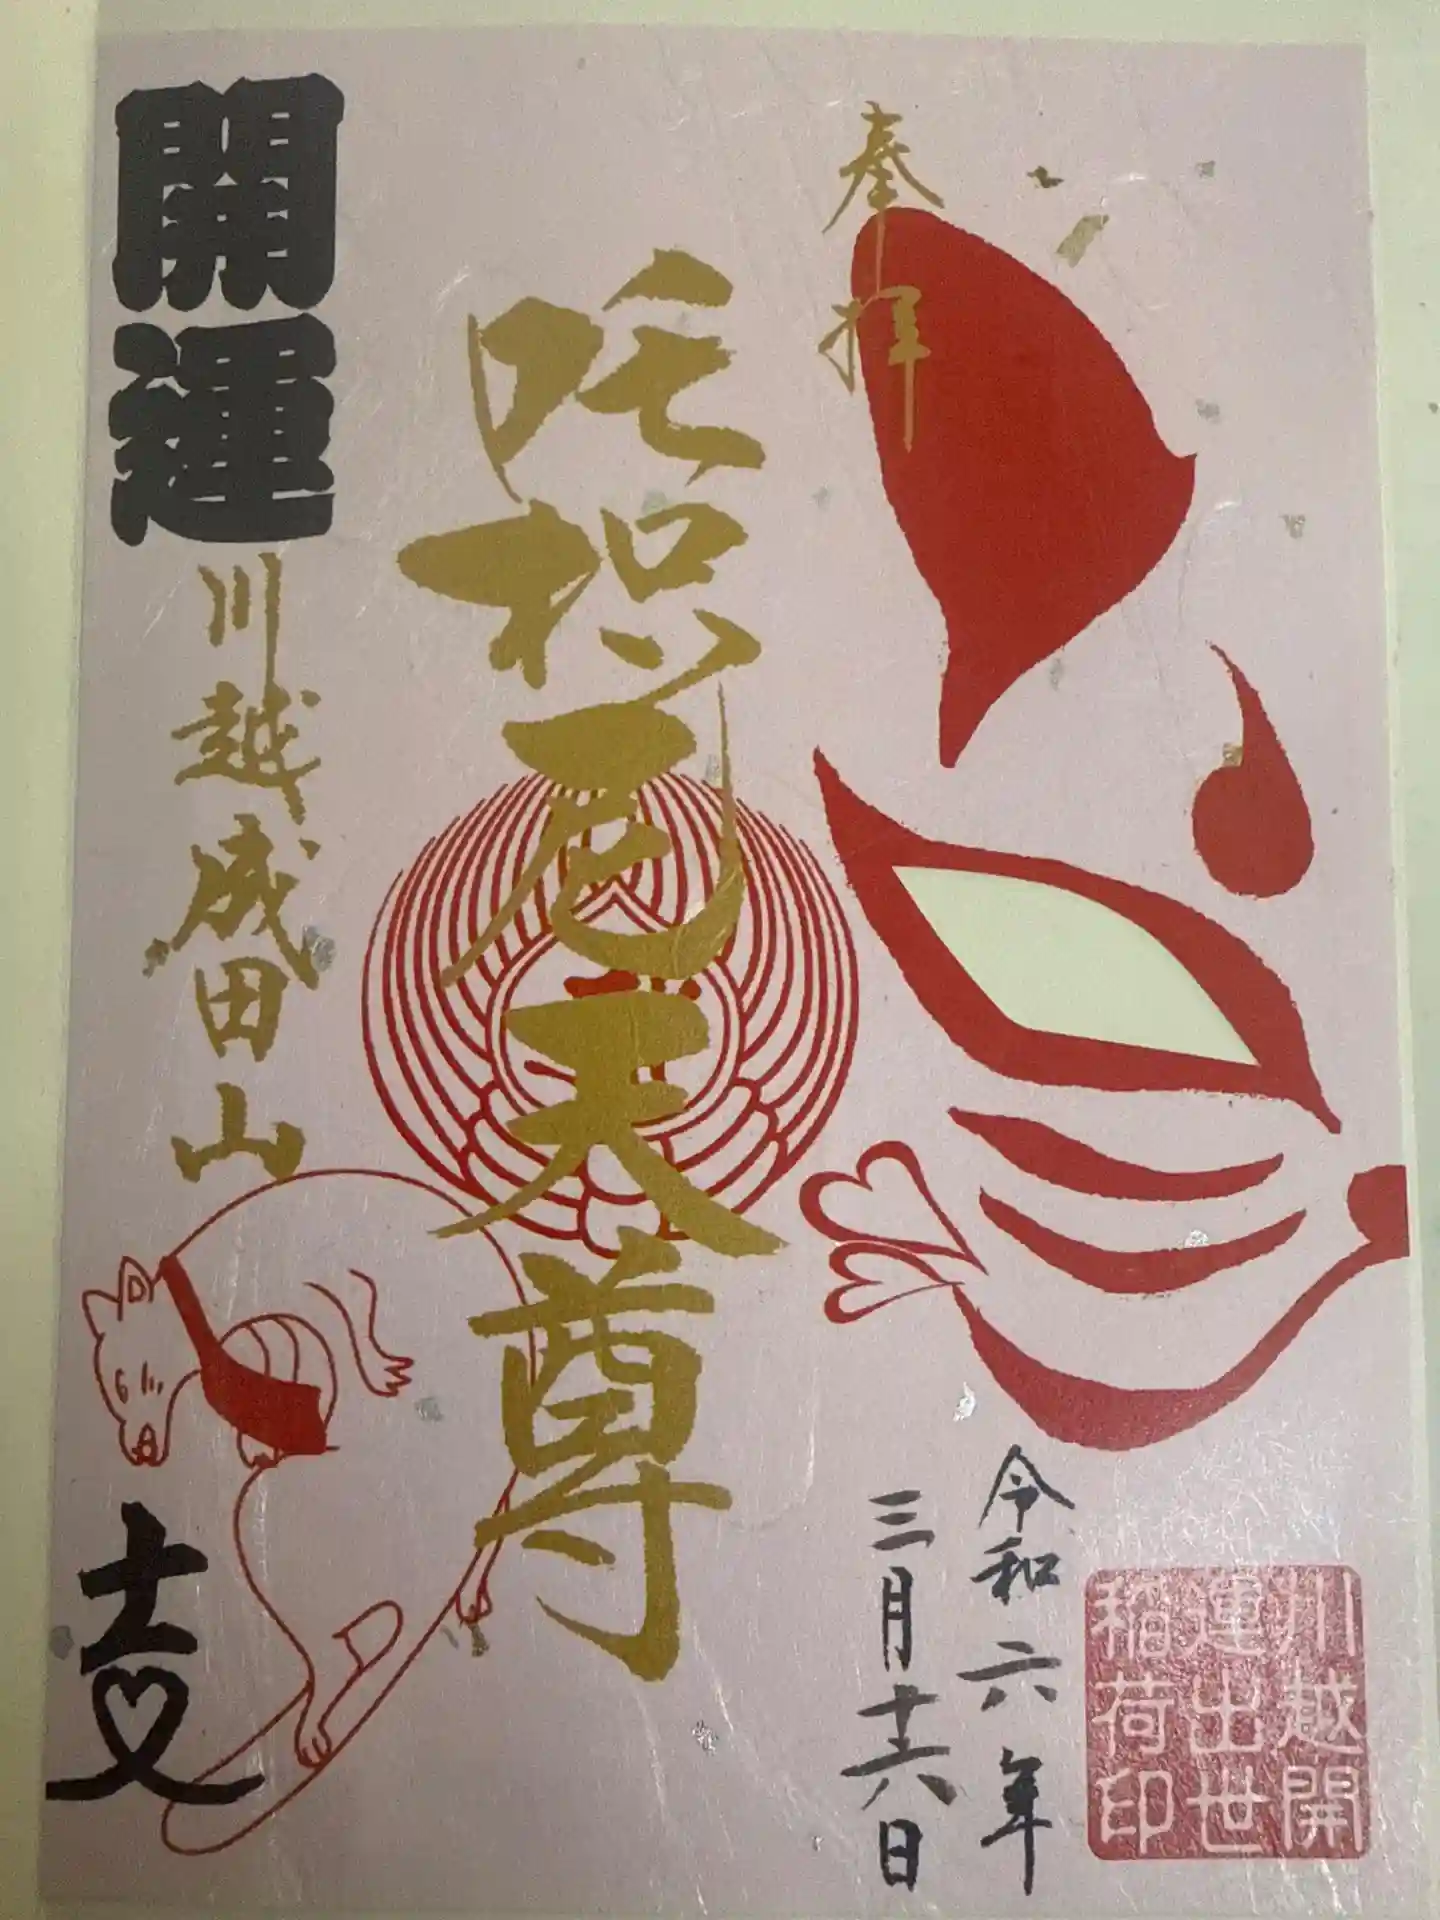 奉拝
令和六年
三月十六日
川越開
運出世
稲荷印
吒枳尼天尊
開運
川越成田山